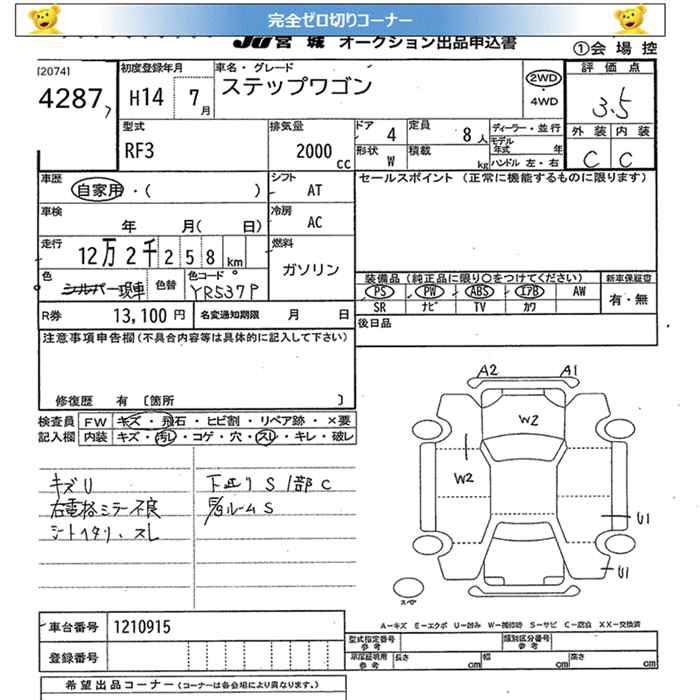 完全ゼロ切りコーナー
JU宮城 オークション出品申込書
①会場控
[2074]
4287
初度登録年月
H14 7月
車名・グレード
ステップワゴン
2WD・4WD
評価点
3.5
外装 内装
C C
型式
RF3
排気量
2000cc
ドア 4
定員 8人
形状 W
積載 kg
ディーラー・並行
モデル年式 年
ハンドル 左・右
車歴
自家用・( )
シフト AT
セールスポイント (正常に機能するものに限ります)
車検
年 月( 日)
冷房 AC
走行
12万2千258km
燃料
ガソリン
色
シルバー 現車
色替
色コード
YR537P
装備品(純正品に限り○をつけてください)
新車保証書
PS PW ABS エアB AW
SR ナビ TV カワ
有・無
R券 13,100円
名変通知期限 月 日
後日品
注意事項申告欄(不具合内容等は具体的に記入して下さい)
修復歴 有 〔箇所 〕
検査員記入欄
FW キズ・飛石・ヒビ割・リペア跡・×要
内装 キズ・汚レ・コゲ・穴・スレ・キレ・破レ
キズU
右電格ミラー不良
シートヘタリ、スレ
下廻りS 1部C
E/GルームS
A2 A1
W2
W2
U1
U1
スペア
A―キズ E―エクボ U―凹み W―補修跡 S―サビ C―腐食 XX―交換済
車台番号 1210915
登録番号
型式指定番号 参考
類別区分番号 参考
車庫証明用 参考
長さ cm 幅 cm 高さ cm
希望出品コーナー(コーナーは各会場により異なります。)